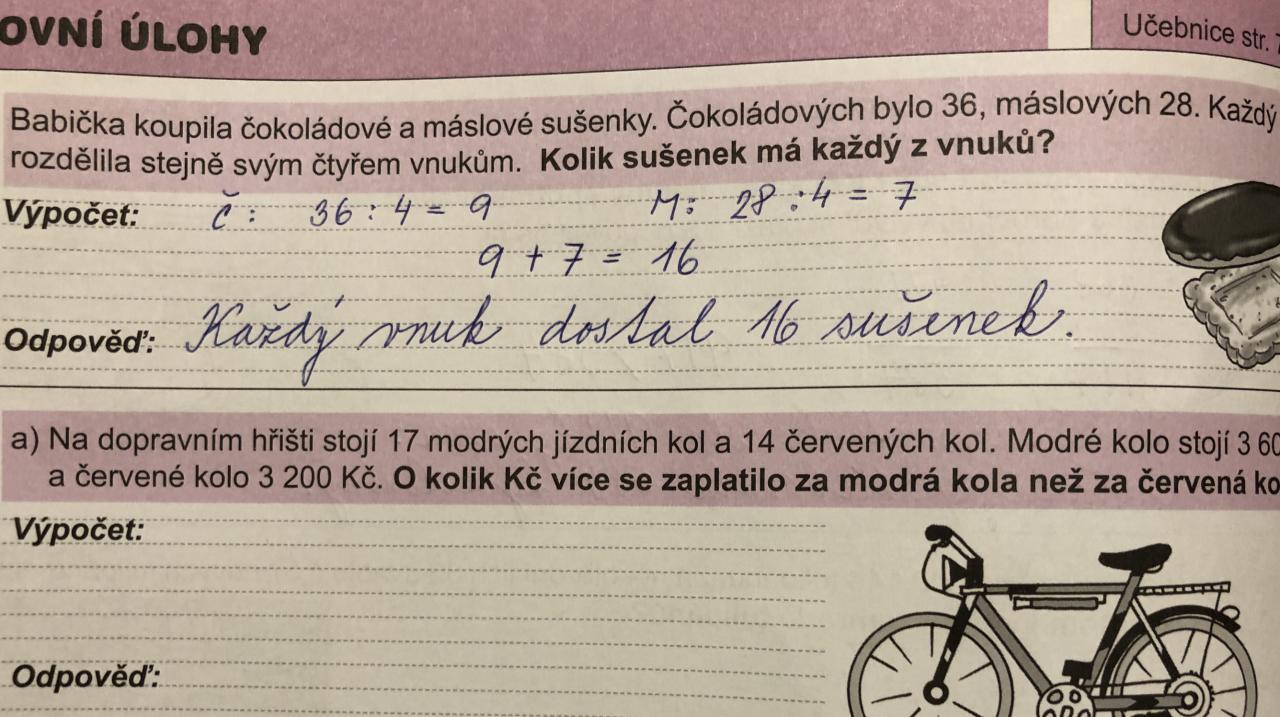 OVNÍ ÚLOHY
Učebnice str.
Babička koupila čokoládové a máslové sušenky. Čokoládových bylo 36, máslových 28. Každý
rozdělila stejně svým čtyřem vnukům. Kolik sušenek má každý z vnuků?
Výpočet: Č: 36 : 4 = 9 M: 28 : 4 = 7
9 + 7 = 16
Odpověď: Každý vnuk dostal 16 sušenek.
a) Na dopravním hřišti stojí 17 modrých jízdních kol a 14 červených kol. Modré kolo stojí 3 60
a červené kolo 3 200 Kč. O kolik Kč více se zaplatilo za modrá kola než za červená ko
Výpočet:
Odpověď: